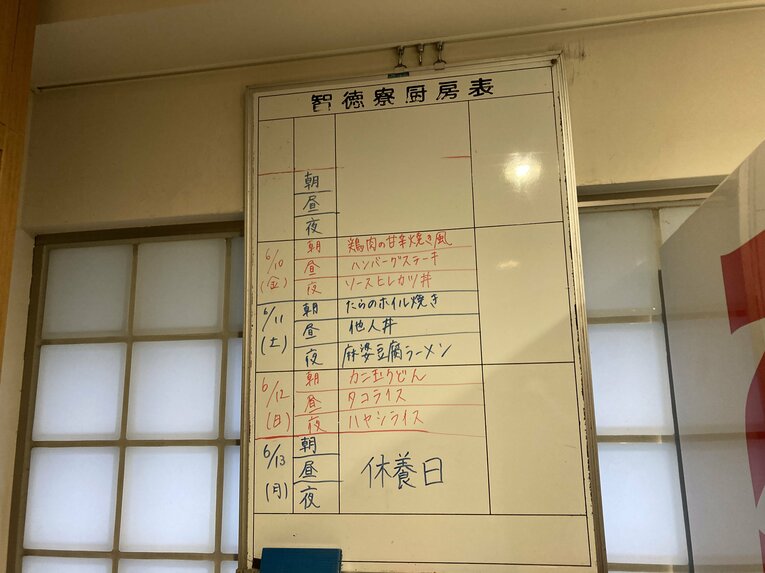 智徳寮厨房表
朝
昼
夜
6/10 (金)
朝 鶏肉の甘辛焼き風
昼 ハンバーグステーキ
夜 ソースヒレカツ丼
6/11 (土)
朝 たらのホイル焼き
昼 他人丼
夜 麻婆豆腐ラーメン
6/12 (日)
朝 カニ玉うどん
昼 タコライス
夜 ハヤシライス
6/13 (月)
朝
昼 休養日
夜